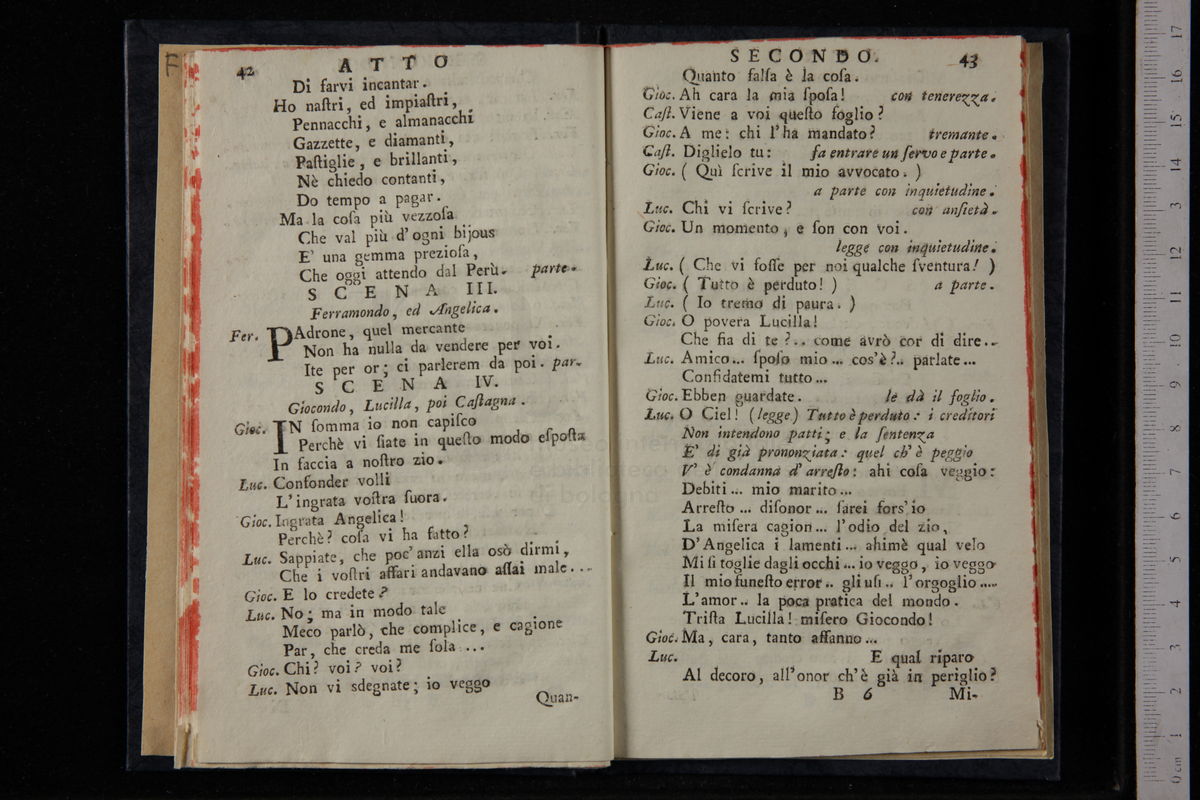 42
ATTO
Di farvi incantar.
Ho naſtri, ed impiaſtri,
Pennacchi, e almanacchi
Gazzette, e diamanti,
Paſtiglie, e brillanti,
Nè chiedo contanti,
Do tempo a pagar.
Ma la coſa più vezzoſa
Che val più d'ogni bijous
E' una gemma prezioſa,
Che oggi attendo dal Perù. parte.
SCENA III.
Ferramondo, ed Angelica.
Fer. PAdrone, quel mercante
Non ha nulla da vendere per voi.
Ite per or; ci parlerem da poi. par-
SCENA IV.
Giocondo, Lucilla, poi Caſtagna.
Gioc. IN ſomma io non capiſco
Perchè vi ſiate in queſto modo eſpoſta
In faccia a noſtro zio.
Luc. Confonder volli
L'ingrata voſtra ſuora.
Gioc. Ingrata Angelica!
Perchè? coſa vi ha fatto?
Luc. Sappiate, che poc'anzi ella osò dirmi,
Che i voſtri affari andavano aſſai male...
Gioc. E lo credete?
Luc. No; ma in modo tale
Meco parlò, che complice, e cagione
Par, che creda me ſola...
Gioc. Chi? voi? voi?
Luc. Non vi sdegnate; io veggo
Quan-
SECONDO.
43
Quanto falſa è la coſa.
Gioc. Ah cara la mia ſpoſa! con tenerezza.
Caſt. Viene a voi queſto foglio?
Gioc. A me: chi l'ha mandato? tremante.
Caſt. Diglielo tu: fa entrare un ſervo e parte.
Gioc. ( Quì ſcrive il mio avvocato. )
a parte con inquietudine.
Luc. Chi vi ſcrive? con anſietà.
Gioc. Un momento, e ſon con voi.
legge con inquietudine.
Luc. ( Che vi foſſe per noi qualche ſventura! )
Gioc. ( Tutto è perduto! ) a parte.
Luc. ( Io tremo di paura. )
Gioc. O povera Lucilla!
Che fia di te?.. come avrò cor di dire..
Luc. Amico... ſpoſo mio... cos'è?.. parlate...
Confidatemi tutto...
Gioc. Ebben guardate. le dà il foglio.
Luc. O Ciel! (legge) Tutto è perduto: i creditori
Non intendono patti; e la ſentenza
E' di già prononziata: quel ch'è peggio
V' è condanna d'arreſto: ahi coſa veggio:
Debiti... mio marito...
Arreſto... diſonor... ſarei fors'io
La miſera cagion... l'odio del zio,
D'Angelica i lamenti... ahimè qual velo
Mi ſi toglie dagli occhi... io veggo, io veggo
Il mio funeſto error.. gli uſi.. l'orgoglio.....
L'amor.. la poca pratica del mondo.
Triſta Lucilla! miſero Giocondo!
Gioc. Ma, cara, tanto affanno...
Luc. E qual riparo
Al decoro, all'onor ch'è già in periglio?
B 6 Mi-